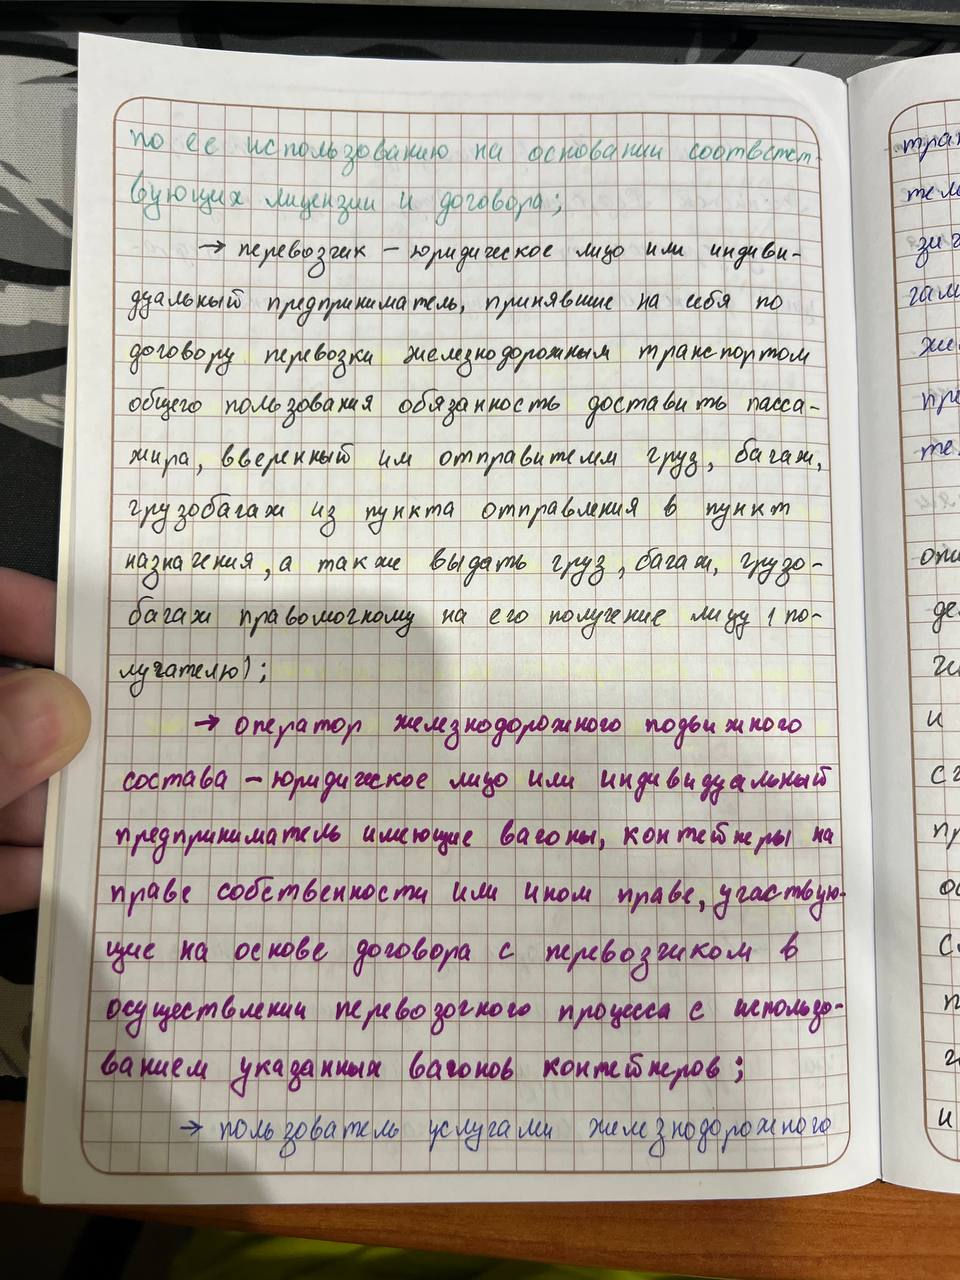 по ее использованию на основании соответст-
вующих лицензии и договора;
→ перевозчик – юридическое лицо или индиви-
дуальный предприниматель, принявшие на себя по
договору перевозки железнодорожным транспортом
общего пользования обязанность доставить пасса-
жира, вверенный им отправителем груз, багаж,
грузобагаж из пункта отправления в пункт
назначения, а также выдать груз, багаж, грузо-
багаж правомочному на его получение лицу (по-
лучателю);
→ оператор железнодорожного подвижного
состава – юридическое лицо или индивидуальный
предприниматель имеющие вагоны, контейнеры на
праве собственности или ином праве, участвую-
щие на основе договора с перевозчиком в
осуществлении перевозочного процесса с использо-
ванием указанных вагонов контейнеров;
→ пользователь услугами железнодорожного